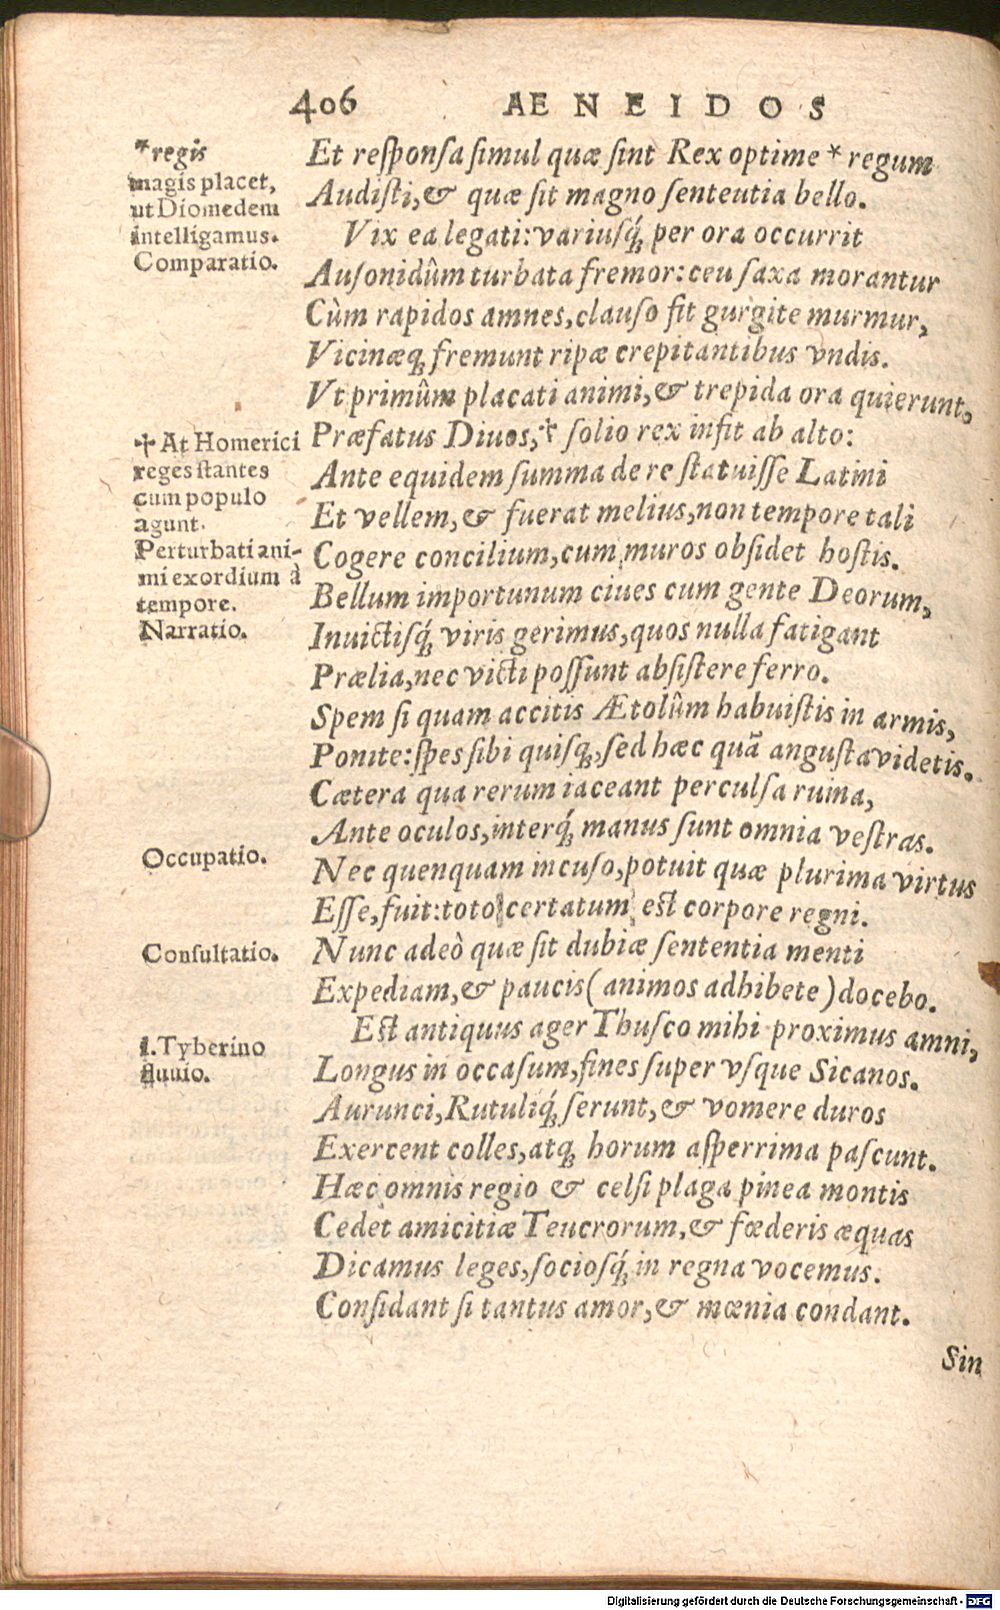 406 AENEIDOS
*regis
magis placet,
ut Diomedem
intelligamus.
Comparatio.
Et responſa ſimul quæ ſint Rex optime * regum
Audiſti, & quæ ſit magno ſententia bello.
Vix ea legati: variuſq́; per ora occurrit
Auſonidûm turbata fremor: ceu ſaxa morantur
Cùm rapidos amnes, clauſo fit gurgite murmur,
Vicinæq; fremunt ripæ crepitantibus vndis.
Vt primûm placati animi, & trepida ora quierunt,
✝ At Homerici
reges ſtantes
cum populo
agunt.
Perturbati ani-
mi exordium à
tempore.
Narratio.
Præfatus Diuos, ✝ ſolio rex infit ab alto:
Ante equidem ſumma de re ſtatuiſſe Latini
Et vellem, & fuerat melius, non tempore tali
Cogere concilium, cum muros obſidet hoſtis.
Bellum importunum ciues cum gente Deorum,
Inuictiſq́; viris gerimus, quos nulla fatigant
Prælia, nec victi poſſunt abſiſtere ferro.
Spem ſi quam accitis Ætolûm habuiſtis in armis,
Ponite: ſpes ſibi quiſq;, ſed hæc quā anguſta videtis.
Cætera qua rerum iaceant perculſa ruina,
Ante oculos, interq́; manus ſunt omnia veſtras.
Occupatio.
Nec quenquam incuſo, potuit quæ plurima virtus
Eſſe, fuit: toto certatum eſt corpore regni.
Conſultatio.
Nunc adeò quæ ſit dubiæ ſententia menti
Expediam, & paucis (animos adhibete) docebo.
Eſt antiquus ager Thuſco mihi proximus amni,
1. Tyberino
fluuio.
Longus in occaſum, fines ſuper vſque Sicanos.
Aurunci, Rutuliq́; ſerunt, & vomere duros
Exercent colles, atq; horum aſperrima paſcunt.
Hæc omnis regio & celſi plaga pinea montis
Cedet amicitiæ Teucrorum, & fœderis æquas
Dicamus leges, ſocioſq́; in regna vocemus.
Conſidant ſi tantus amor, & mœnia condant.
Sin
Digitalisierung gefördert durch die Deutsche Forschungsgemeinschaft - DFG